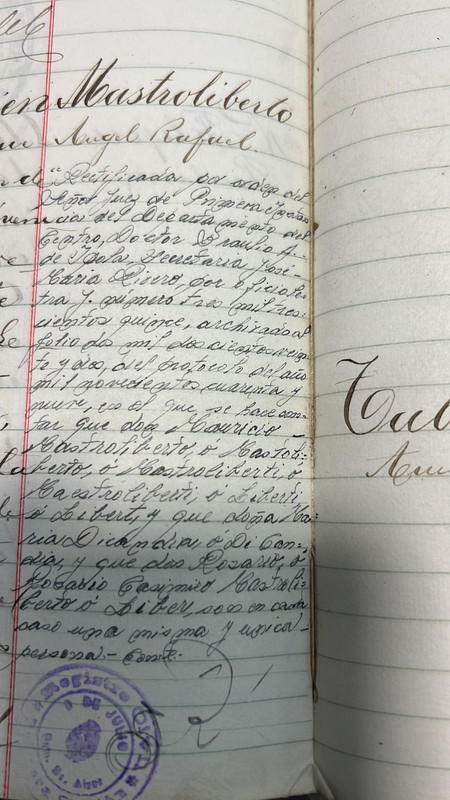 Mastroliberto
Angel Rafael.
"Rectificada por orden del
Señor Juez de Primera
del Departamento del
Centro, Doctor Braulio A.
de Secretaria José
Maria Rivero, por oficio le-
tra J. numero tres mil tres-
cientos quince, archivado al
folio dos mil doscientos
to y dos, del protocolo del año
mil novecientos cuarenta y
nueve, en el que se hace cons-
tar que don Mauricio
Mastroliberto, ó
berto, ó Mastroliberti, ó
Maestroliberti, ó Liberti
ó Libert, y que doña Ma-
ria Dicandia, ó Di Can-
dia, y que don Rosario, ó
Rosario Casimiro Mastroli-
berto ó Liber, son en cada
caso una misma y unica
persona.- Conste.-
Registro Civil
9 DE JULIO